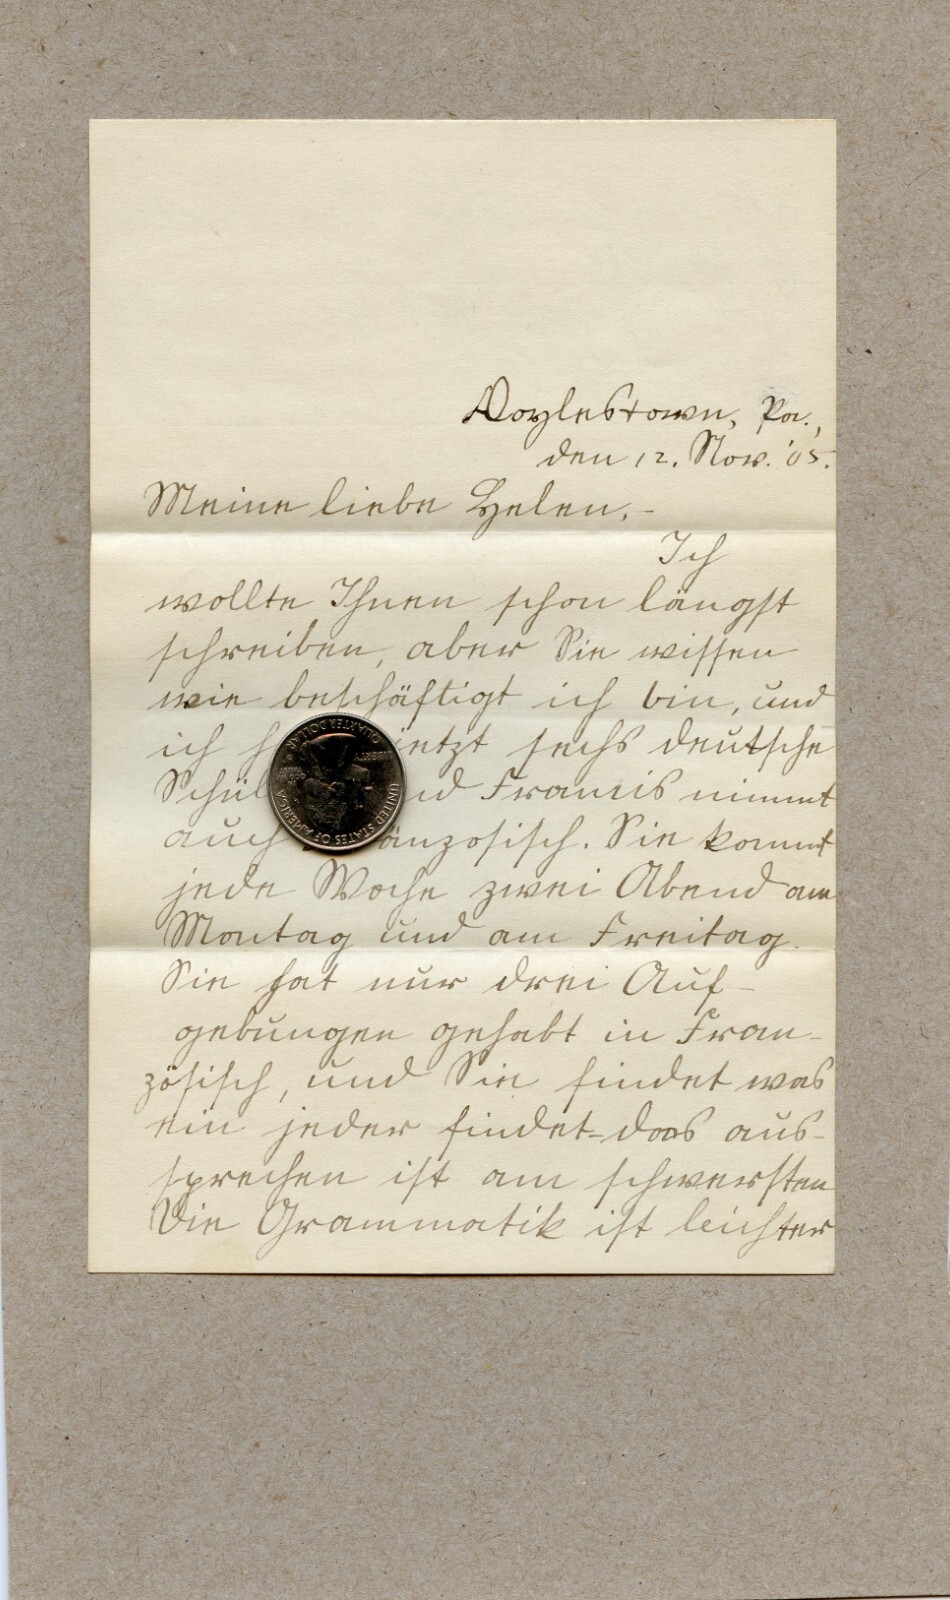 Doylestown, Pa.,
den 12. Nov. '05.
Meine liebe Helen,-
Ich
wollte Ihnen schon längst
schreiben, aber Sie wissen
wie beschäftigt ich bin, und
ich h jetzt sechs deutsche
Schül nd Francis nimmt
auch änzosisch. Sie kommt
jede Woche zwei Abend am
Montag und am Freitag.
Sie hat nur drei Auf-
gebungen gehabt in Fran-
zösisch, und Sie findet was
ein jeder findet-das aus-
sprechen ist am schwersten
Die Grammatik ist leichter
UNITED STATES OF AMERICA
LIBERTY
IN GOD WE TRUST
QUARTER DOLLAR